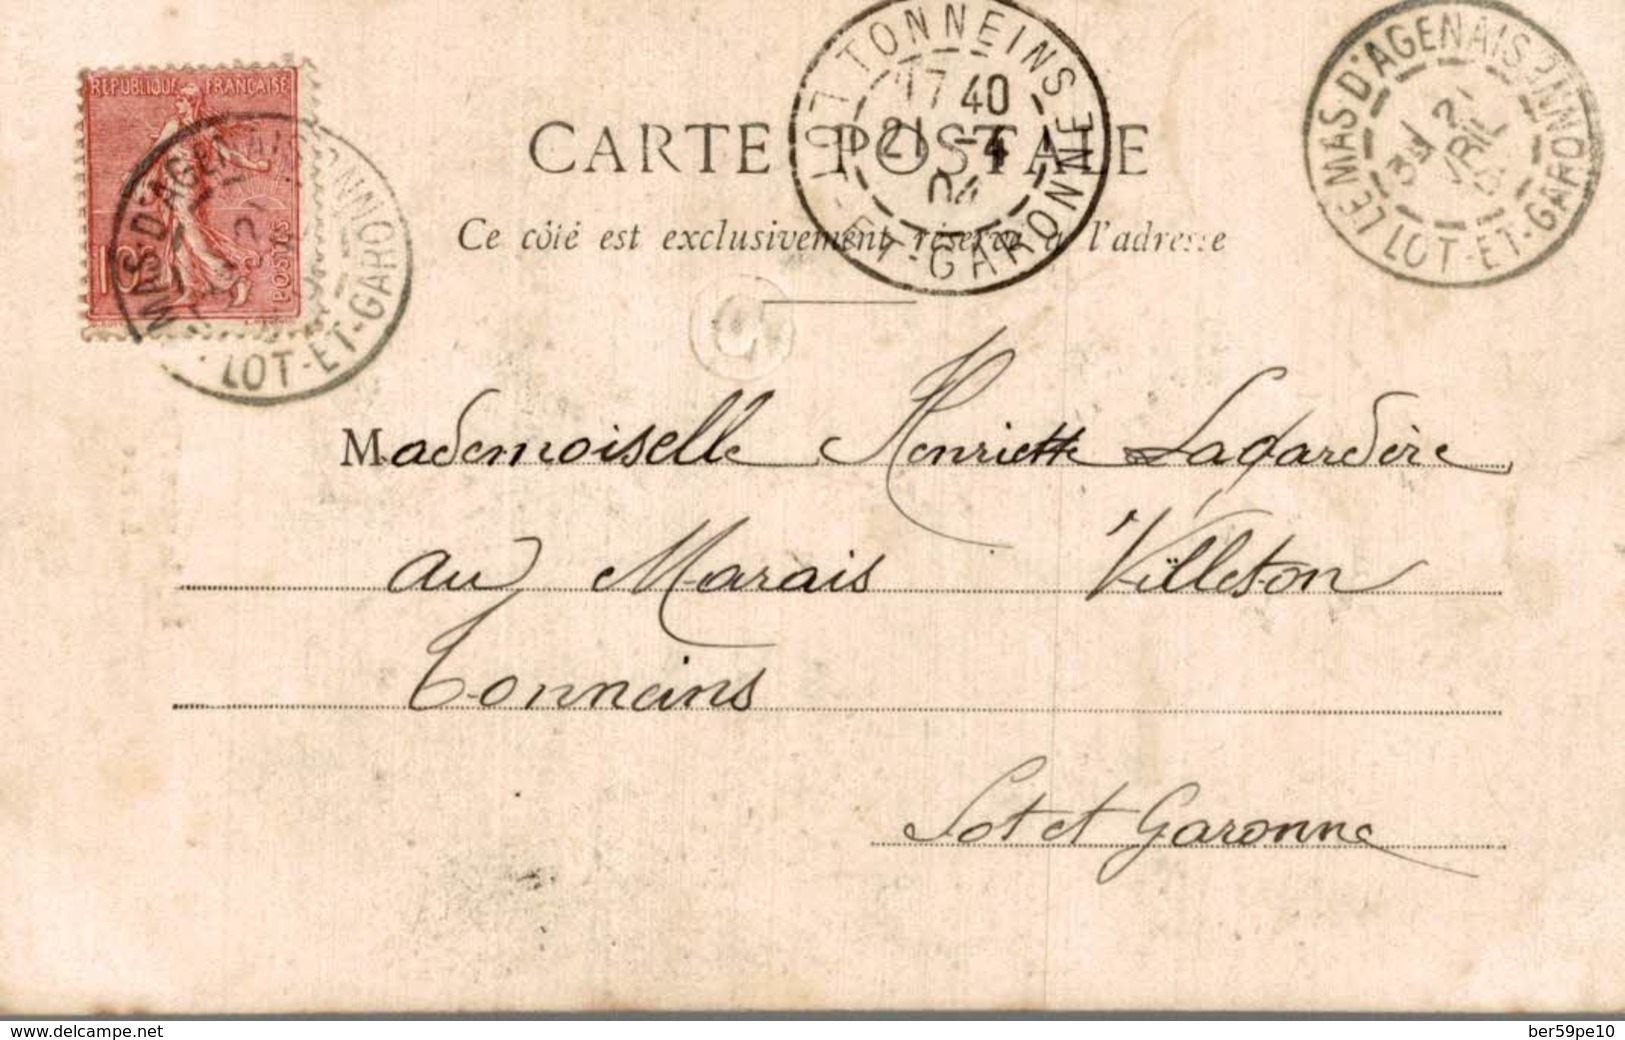 REPUBLIQUE FRANÇAISE
POSTES
MAS-D'AGENAIS
LOT-ET-GARONNE
TONNEINS
17 40
21 -4
04
LOT-ET-GARONNE
LE MAS D'AGENAIS
21
AVRIL
LOT-ET-GARONNE
CARTE POSTALE
Ce côté est exclusivement réservé à l'adresse
Mademoiselle Henriette Lagardère
au Marais Villeton
Tonneins
Lot et Garonne
www.delcampe.net
ber59pe10